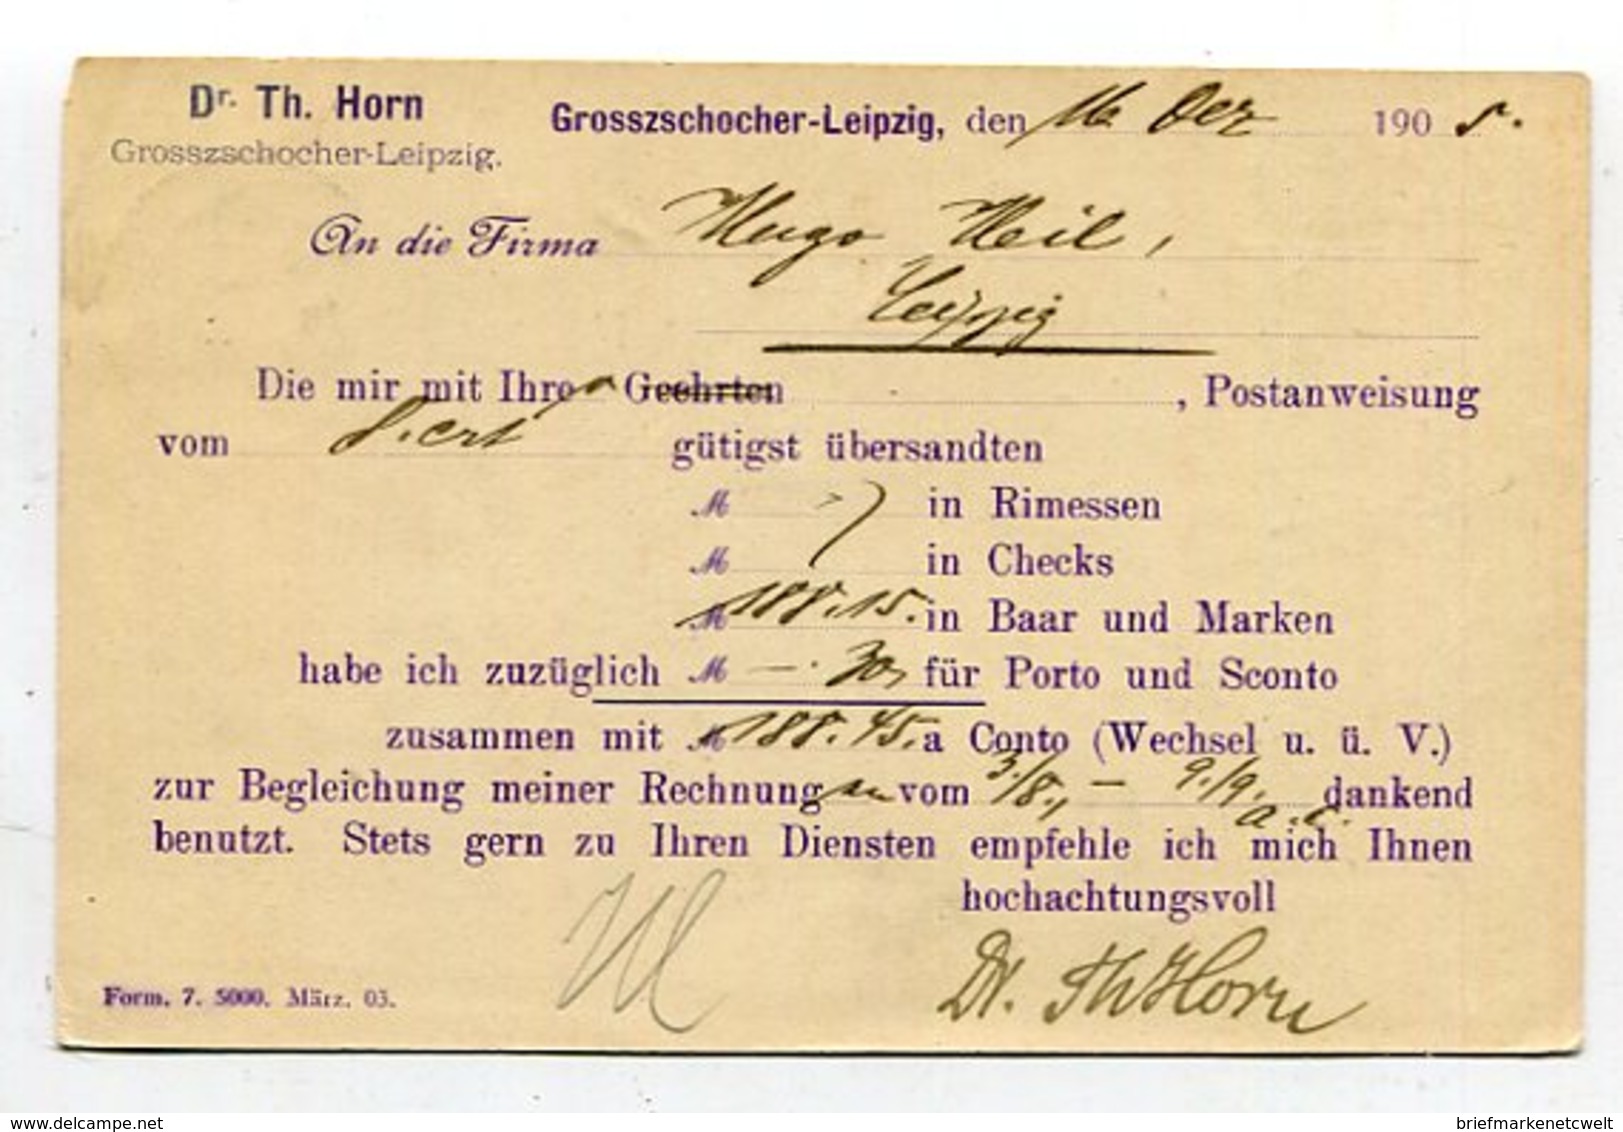 Dr. Th. Horn
Grosszschocher-Leipzig.
Grosszschocher-Leipzig, den 16 Dez 1905.
An die Firma Hugo Heil,
Leipzig
Die mir mit Ihrer Geehrten , Postanweisung
vom gütigst übersandten
M in Rimessen
M in Checks
M 188.15. in Baar und Marken
habe ich zuzüglich M —.30, für Porto und Sconto
zusammen mit M 188.45. a Conto (Wechsel u. ü. V.)
zur Begleichung meiner Rechnungen vom 3./8., – 9./9. a.c. dankend
benutzt. Stets gern zu Ihren Diensten empfehle ich mich Ihnen
hochachtungsvoll
Dr. Th Horn
Form. 7. 5000. März. 05.
delcampe.net
briefmarkenetcwelt